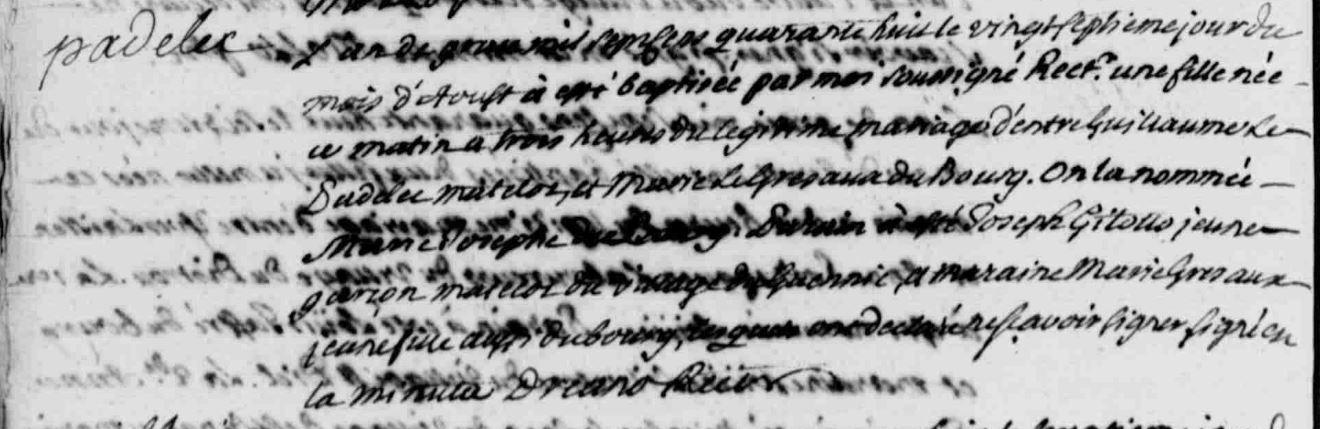 padelec
L'an de grace mil sept cens quarante huit le vingt septieme jour du
mois d'Aoust à esté baptisée par moi soussigné Rect.r une fille née
ce matin a trois heures du legitime mariage d'entre Guillaume Le
Padelec matelot, et Marie Le Gresaux du Bourg. On la nommée
Marie Josephe Parain à esté Joseph Gitoue jeune
garçon matelot du village du Guernic, et maraine Marie Gresaux
jeune fille aussi du bourg, lesquels ont declaré ne sçavoir signer signé en
la minute Dreano Recteur